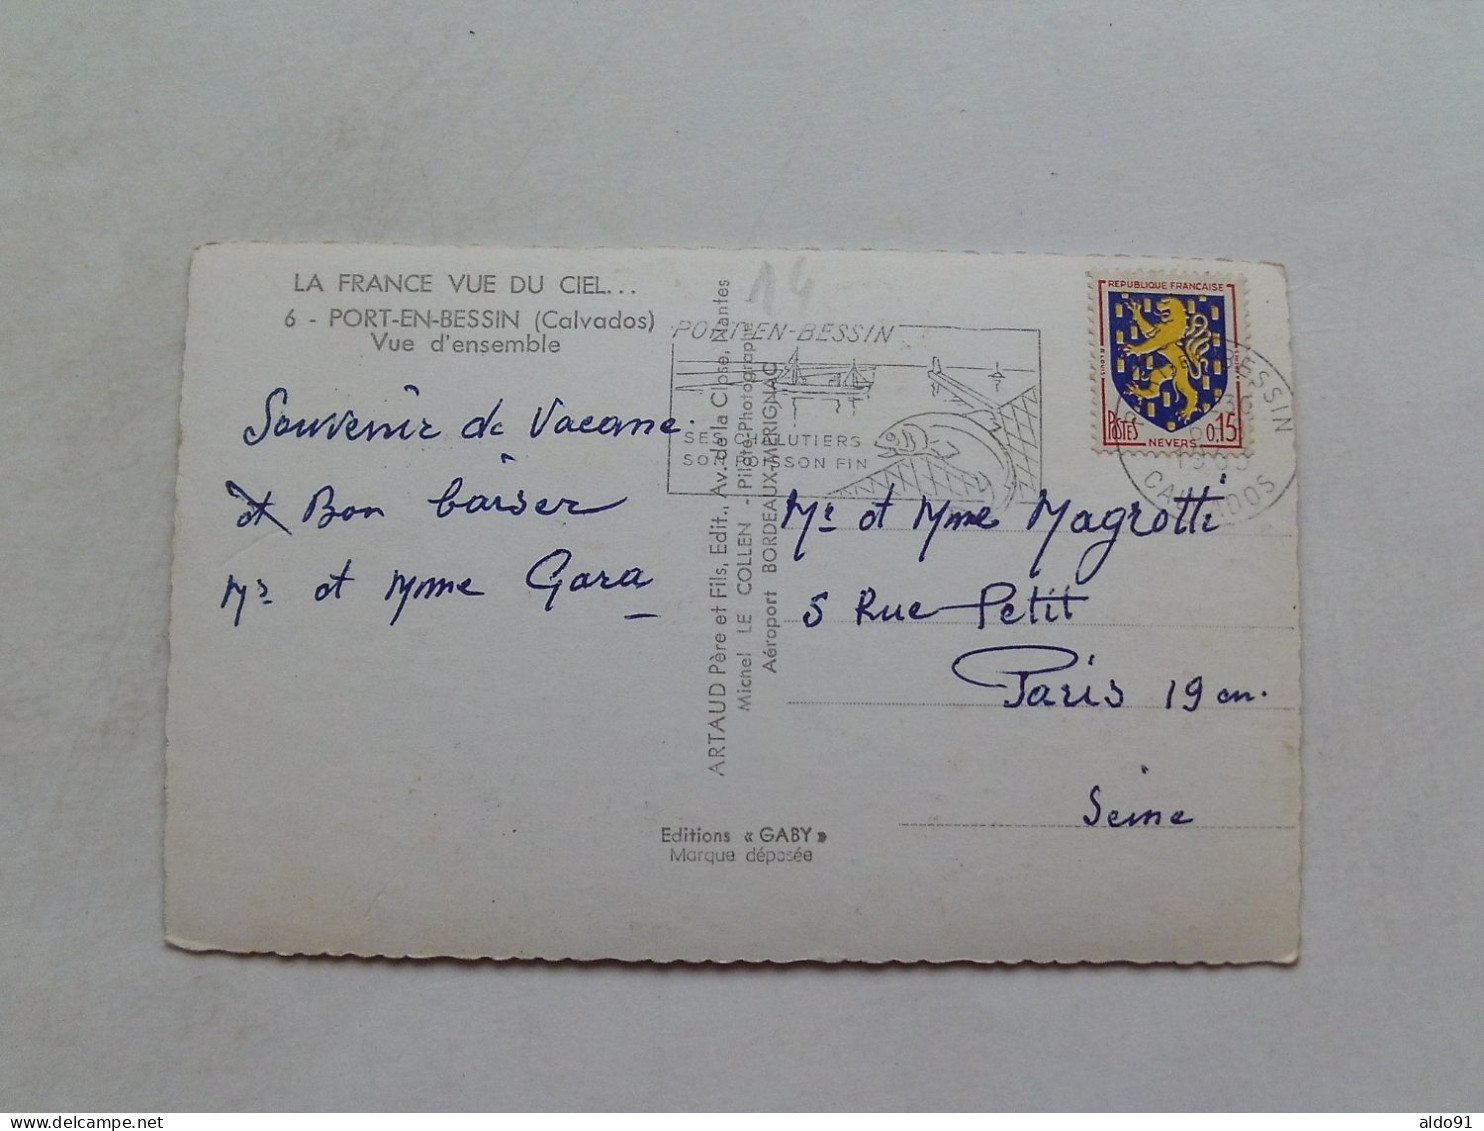 LA FRANCE VUE DU CIEL...
6 - PORT-EN-BESSIN (Calvados)
Vue d'ensemble
Souvenir de Vacane.
et Bon baiser
Mr et Mme Gara
14
ARTAUD Père et Fils, Edit., Av. de la Close, Nantes
Michel LE COLLEN - Pilote-Photographe
Aéroport BORDEAUX-MÉRIGNAC
Editions « GABY »
Marque déposée
PORT-EN-BESSIN
SES CHALUTIERS
SON POISSON FIN
REPUBLIQUE FRANCAISE
POSTES 0,15
NEVERS
BESSIN
CALVADOS
Mr et Mme Magrotti
5 Rue Petit
Paris 19 em.
Seine
aldo91